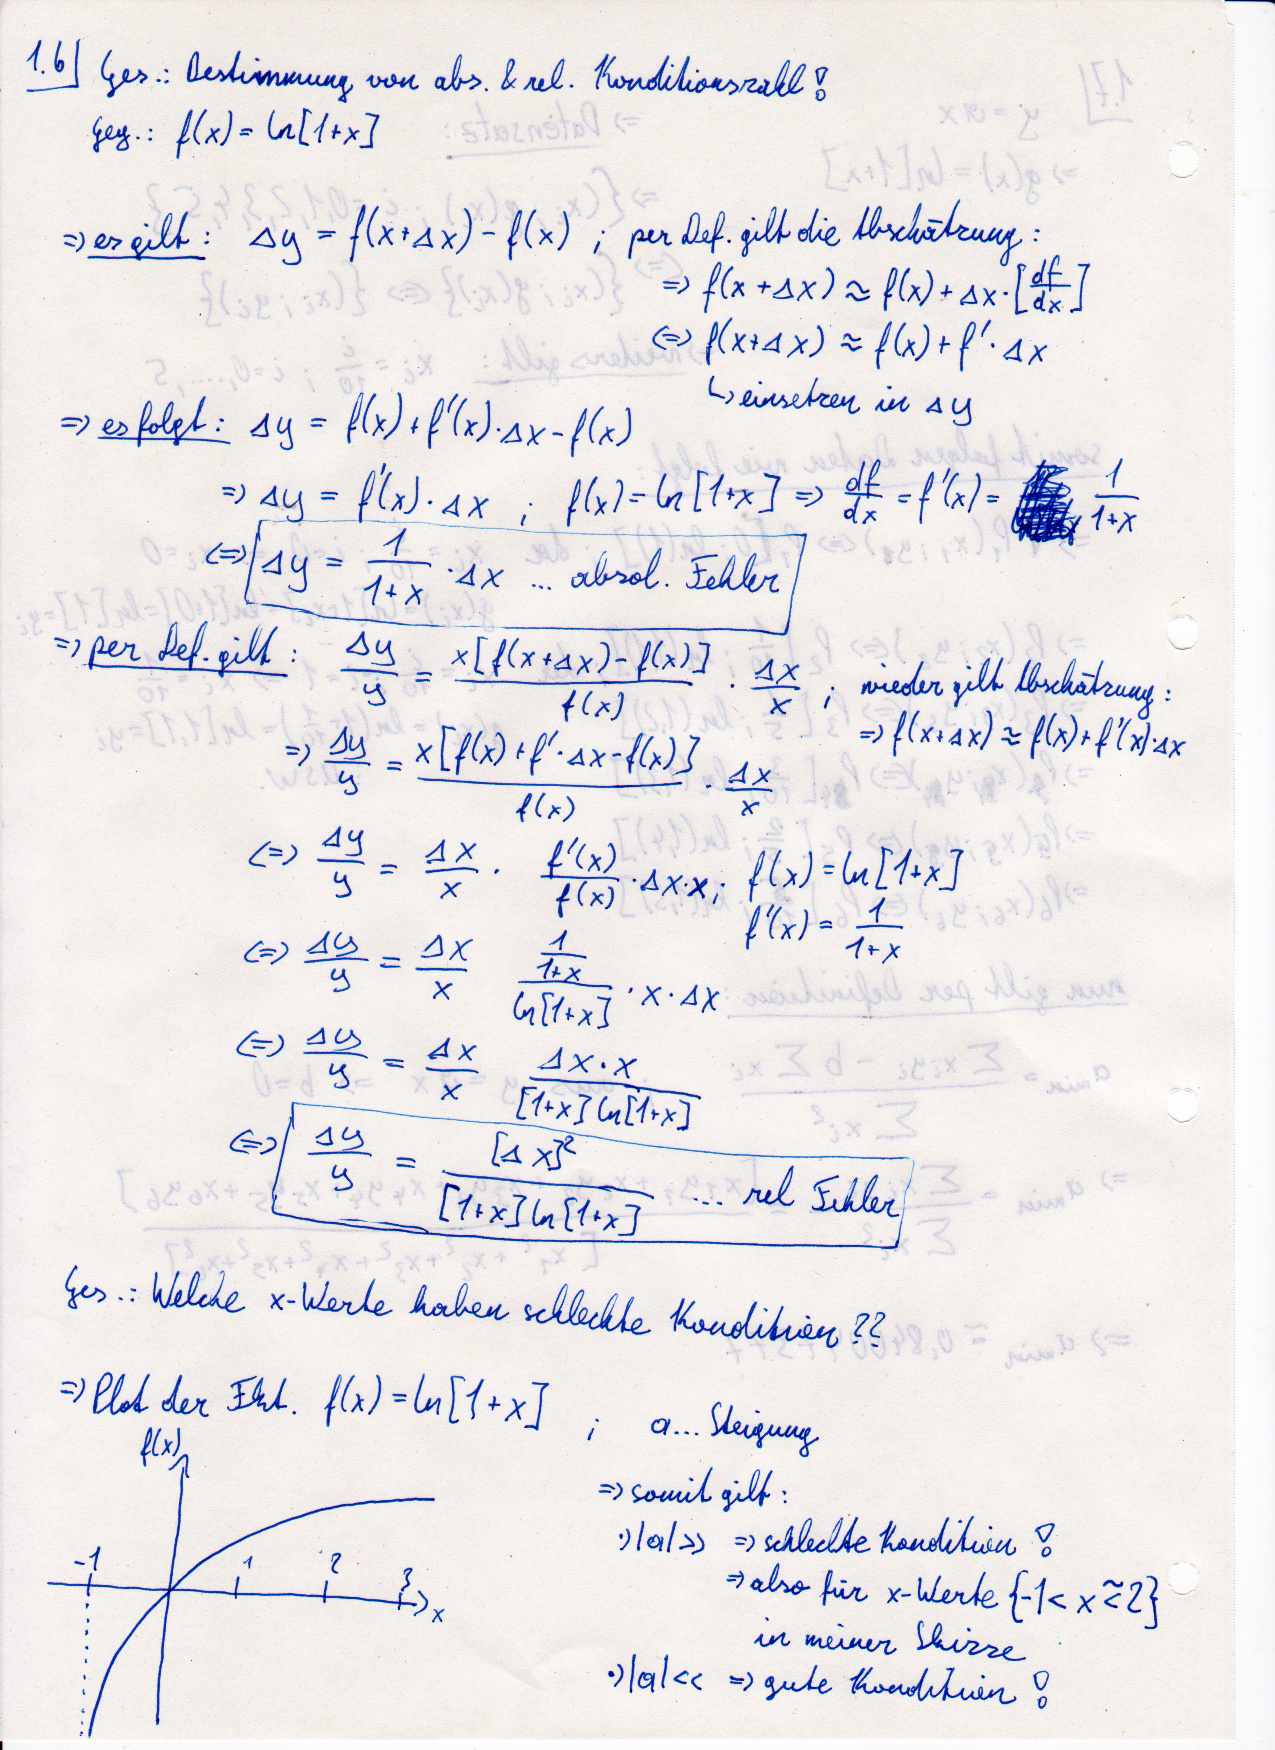 1.6] Ges.: Bestimmung von abs. & rel. Konditionszahl!
Geg.: f(x) = ln[1+x]
=> es gilt: Δy = f(x+Δx) - f(x) ; per Def. gilt die Abschätzung:
=> f(x+Δx) ≈ f(x) + Δx · [df/dx]
<=> f(x+Δx) ≈ f(x) + f' · Δx
↳ einsetzen in Δy
=> es folgt: Δy = f(x) + f'(x) · Δx - f(x)
=> Δy = f'(x) · Δx ; f(x) = ln[1+x] => df/dx = f'(x) = 1/(1+x)
<=> Δy = 1/(1+x) · Δx ... absol. Fehler
=> per Def. gilt: Δy/y = x[f(x+Δx) - f(x)]/f(x) · Δx/x ; wieder gilt Abschätzung:
=> f(x+Δx) ≈ f(x) + f'(x) · Δx
=> Δy/y = x[f(x) + f' · Δx - f(x)]/f(x) · Δx/x
<=> Δy/y = Δx/x · f'(x)/f(x) · Δx · x ; f(x) = ln[1+x]
f'(x) = 1/(1+x)
<=> Δy/y = Δx/x (1/(1+x))/ln[1+x] · x · Δx
<=> Δy/y = Δx/x Δx · x/([1+x] ln[1+x])
<=> Δy/y = [Δx]²/([1+x] ln[1+x]) ... rel Fehler
Ges.: Welche x-Werte haben schlechte Kondition??
=> Plot der Fkt. f(x) = ln[1+x] ; a... Steigung
f(x)
=> somit gilt:
·) |a| >> => schlechte Kondition!
-1 1 2 3 x
=> also für x-Werte {-1 < x ≲ 2}
in meiner Skizze
·) |a| << => gute Kondition!